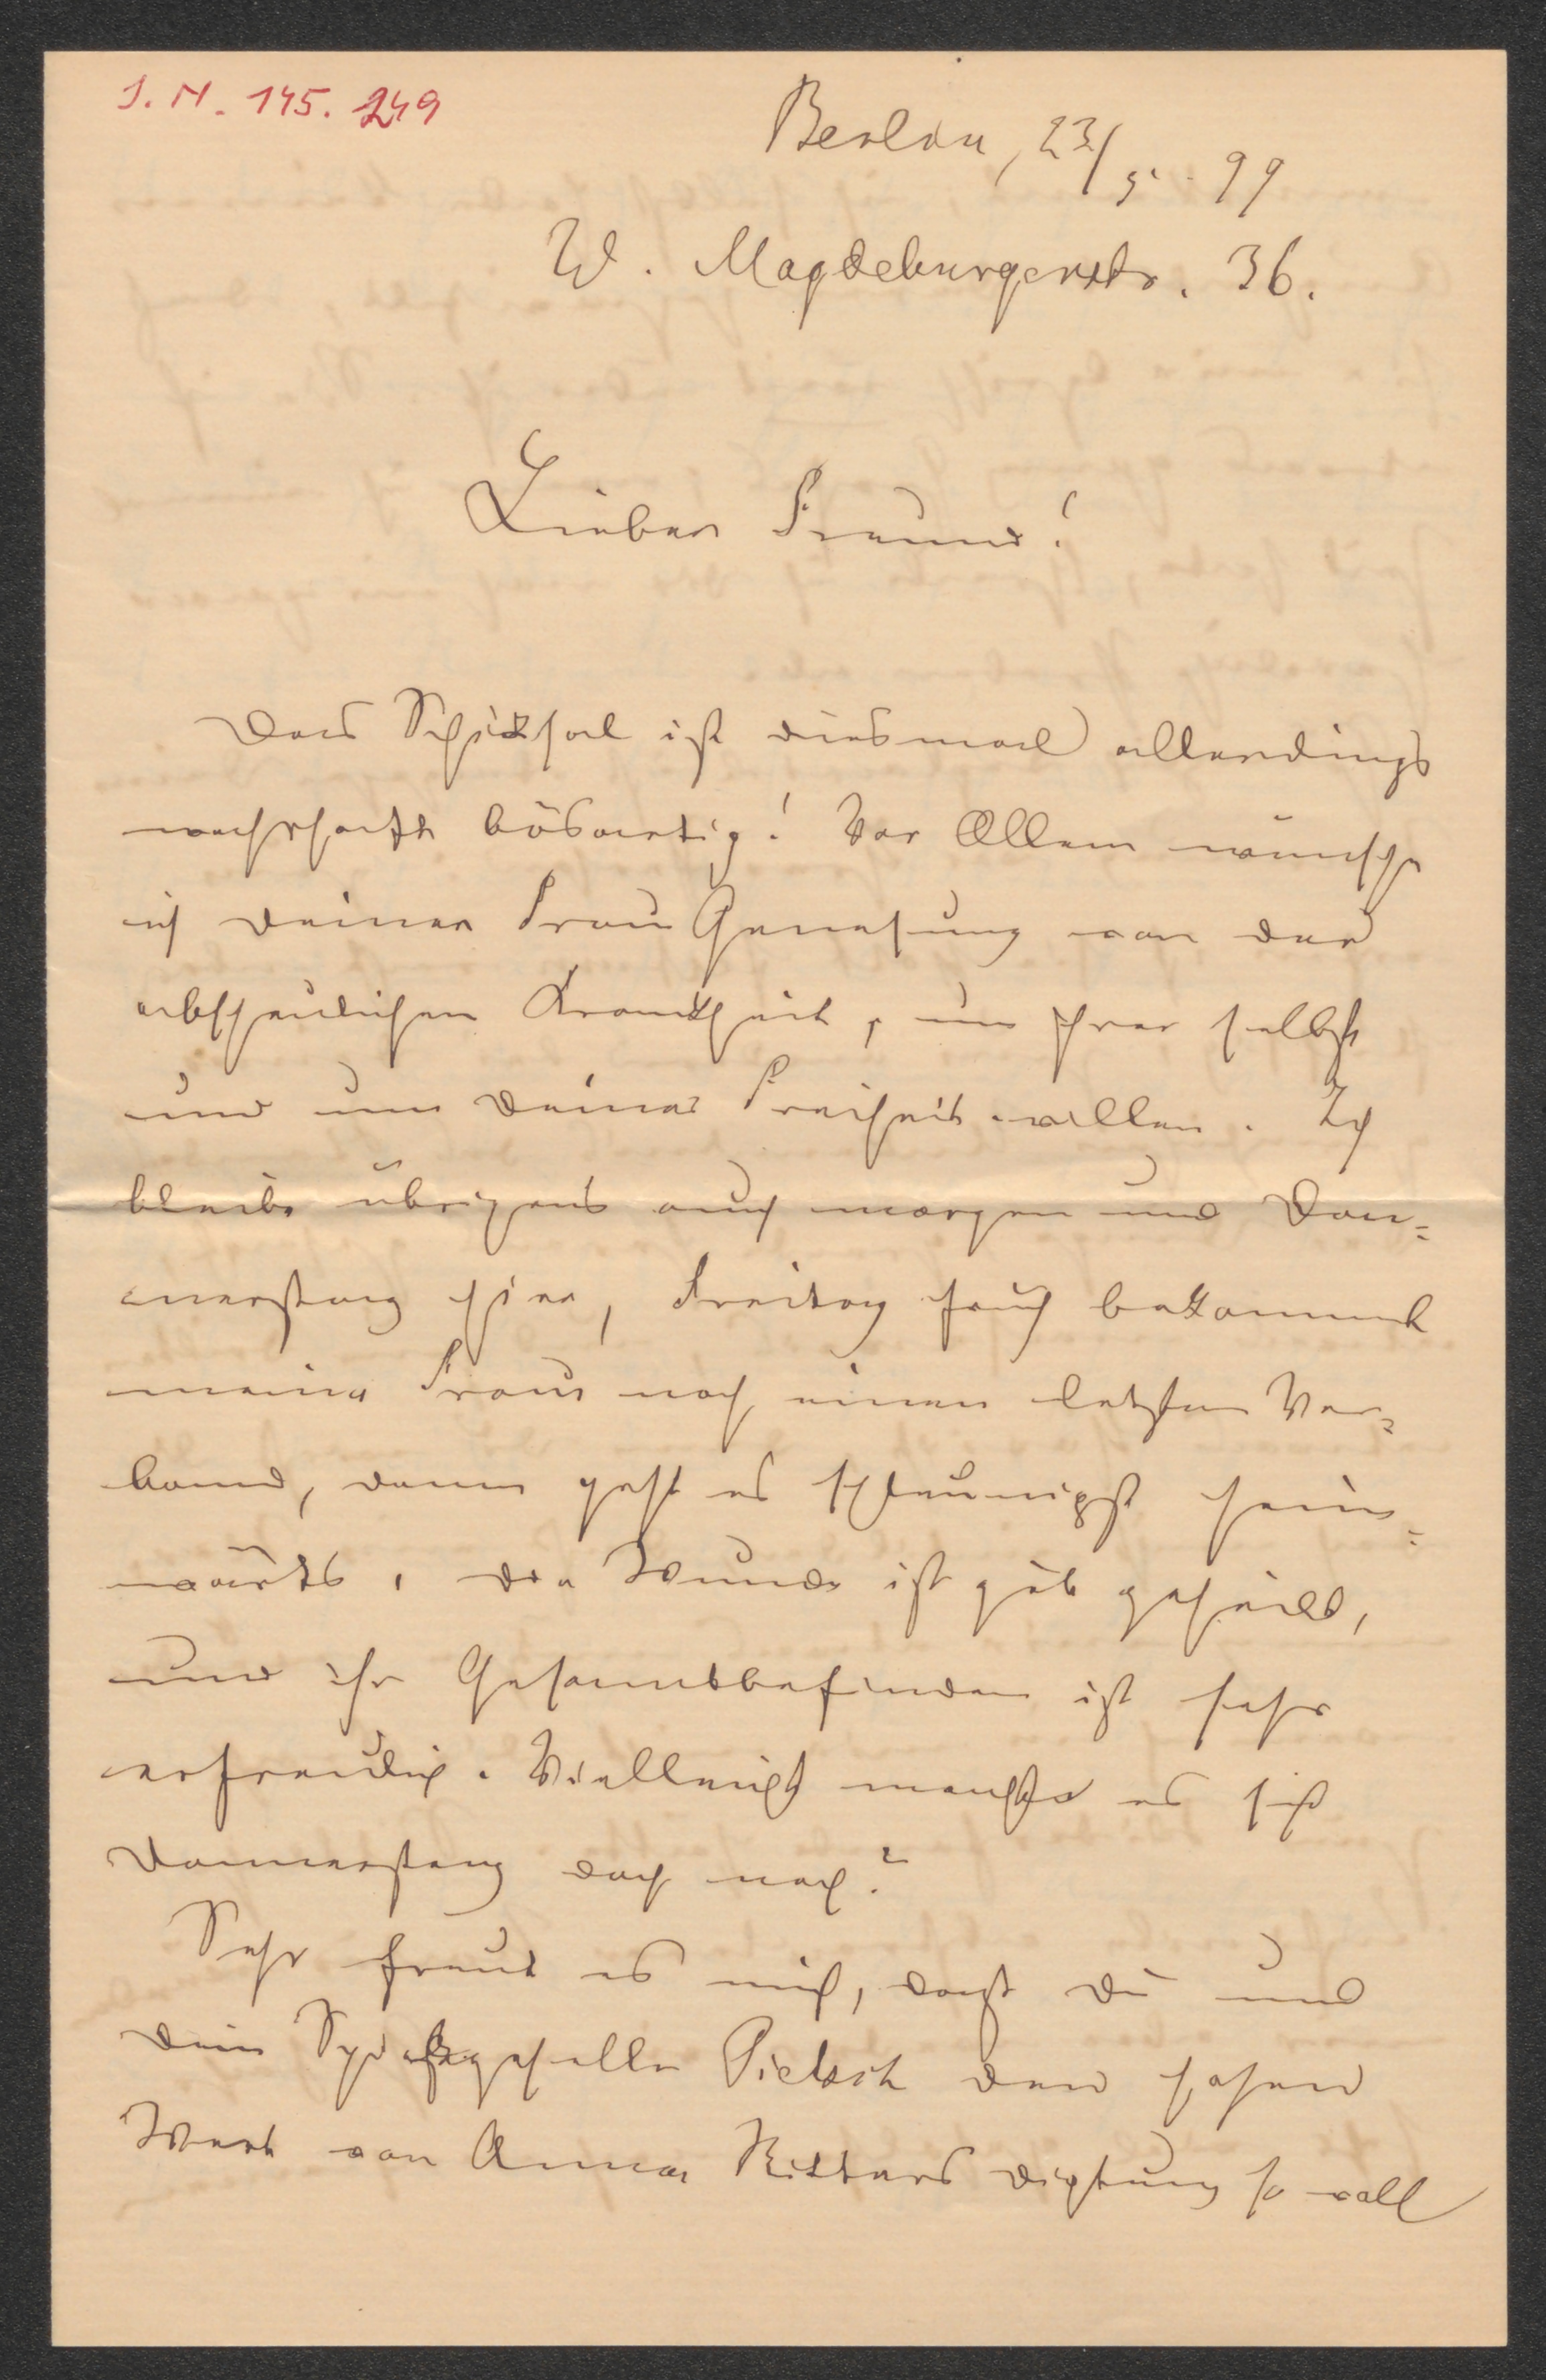 I. N. 145.249
Berlin, 23/5. 99
W. Magdeburgerstr. 36.
Lieber Freund!
Das Schicksal ist diesmal allerdings
wahrhaft bösartig! Vor Allem wünsche
ich Deiner Frau Genesung von der
abscheulichen Krankheit, um ihrer selbst
und um Deiner Freiheit willen. Ich
bleibe übrigens auch morgen und Don=
nerstag hier, Freitag früh bekommt
meine Frau noch einen letzten Ver=
band, dann geht es schleunigst heim=
wärts, die Wunde ist gut geheilt,
und ihr Gesamtbefinden ist sehr
erfreulich. Vielleicht machte es sich
Donnerstag doch noch?
Sehr freut es mich, daß Du und
Dein Pietsch den hohen
Wert von Anna Ritters Dichtung so voll